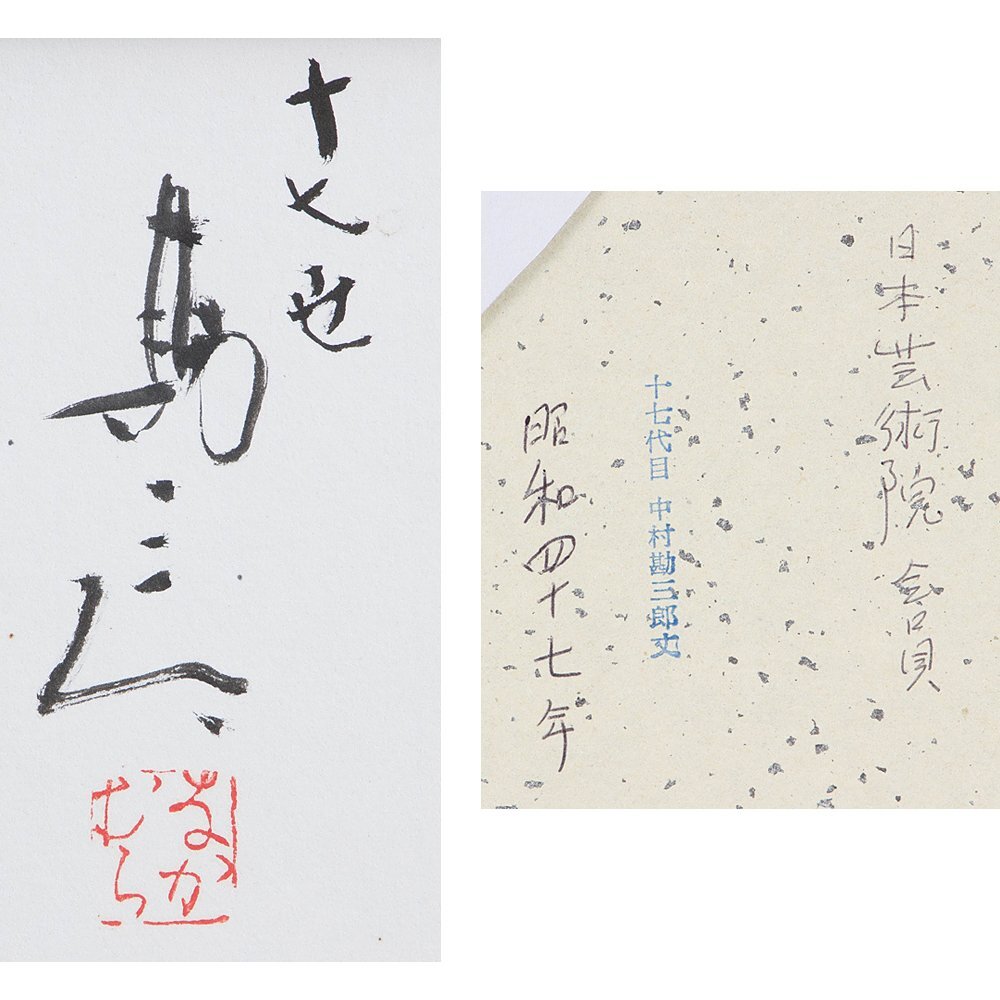 十七世
勘三郎
なかむら
日本芸術院 会員
十七代目 中村勘三郎丈
昭和四十七年